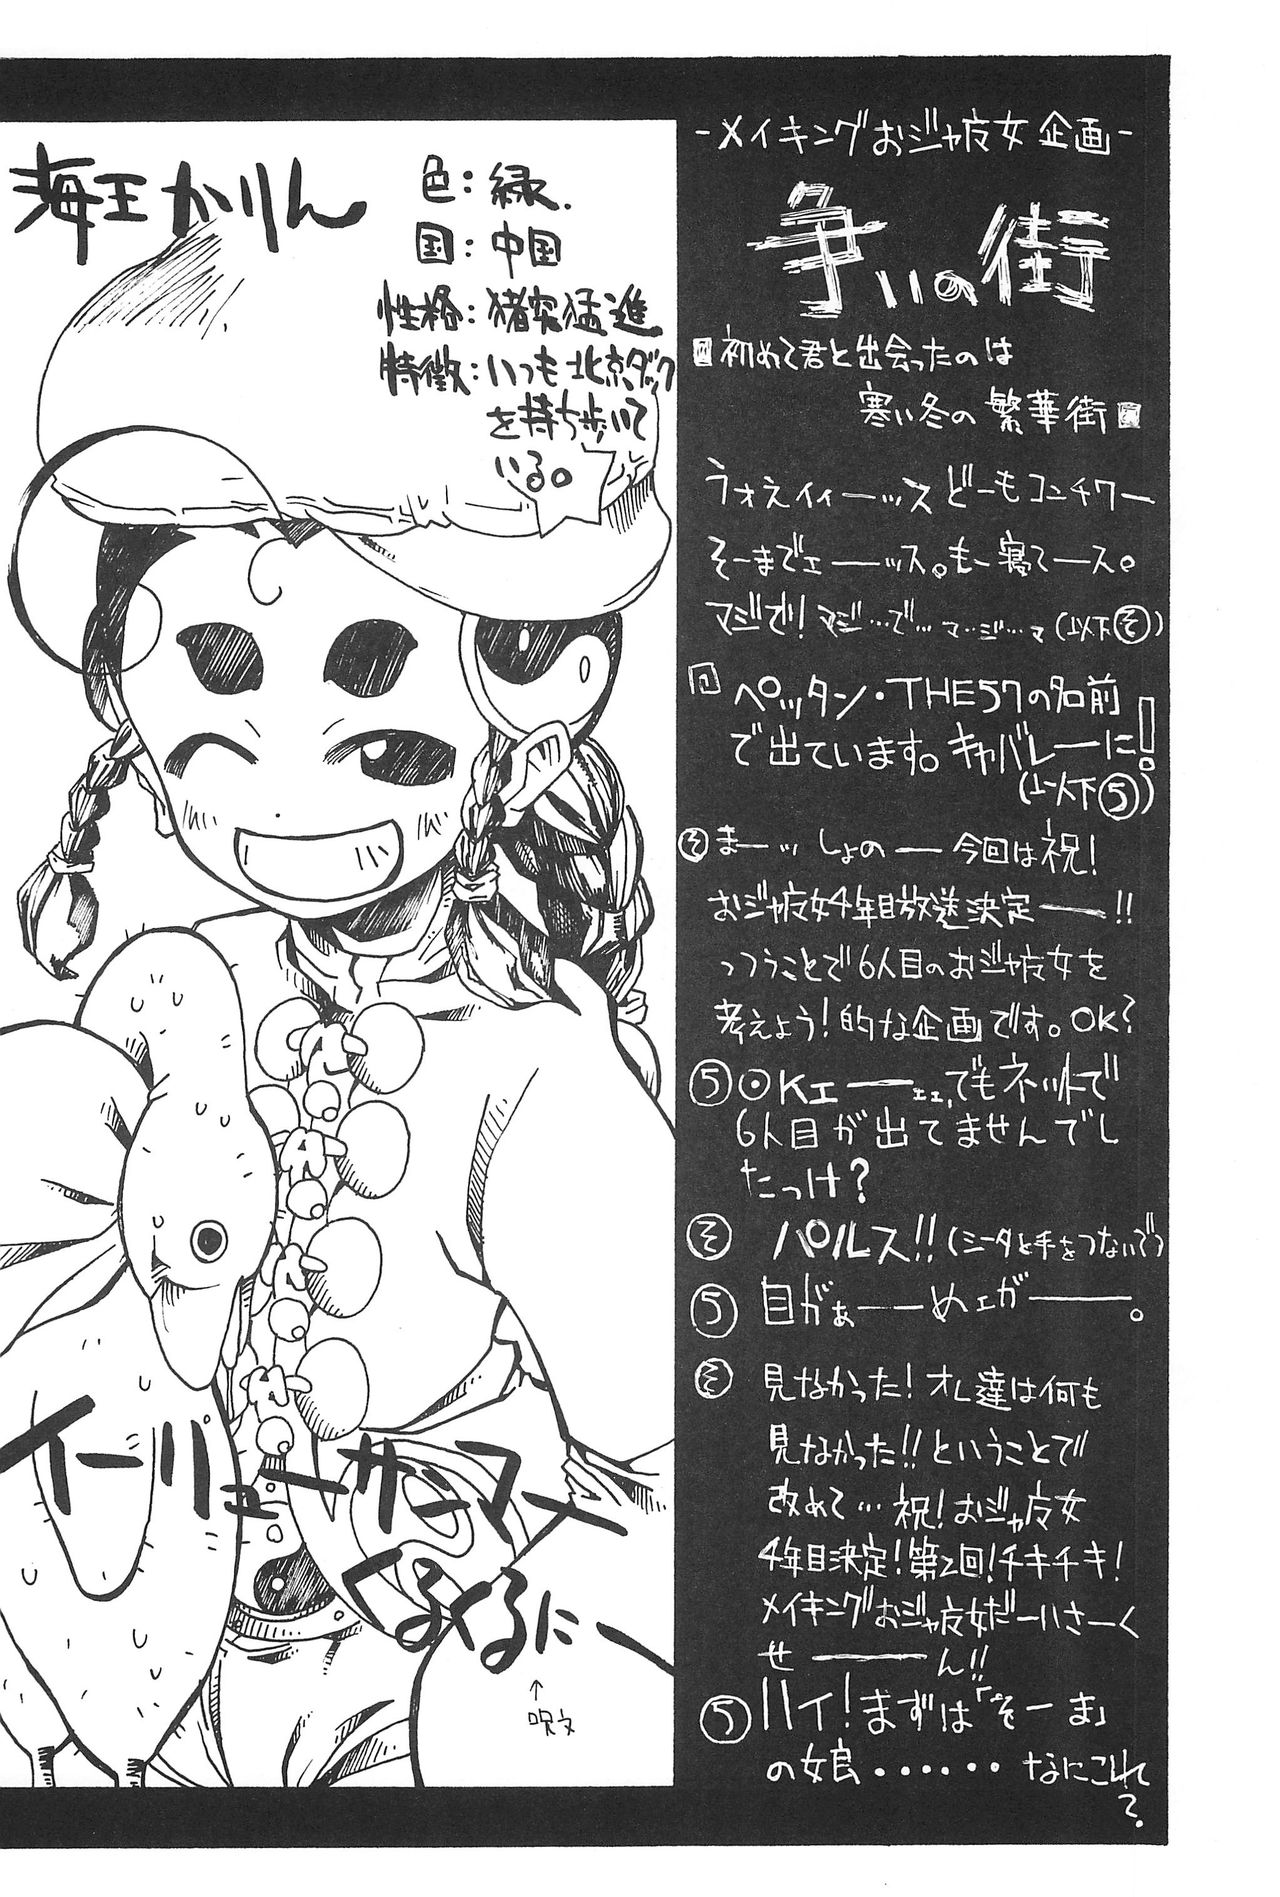 -メイキングおジャ魔女企画-
争いの街
初めて君と出会ったのは
寒い冬の繁華街
ウォえイィーッス どーもコンチワー
そーまでェーッス。もー寝てース。
マジで!マジ…で…マ…ジ…マ(以下そ)
ペッタン・THE57の名前
で出ています。キャバレーに!
(以下5)
そ まーッ しょのー 今回は祝!
おジャ魔女4年目放送決定ー!!
っつうことで6人目のおジャ魔女を
考えよう!的な企画です。OK?
5 OKェーェェ、でもネットで
6人目が出てませんでし
たっけ?
そ バルス!!(シータと手をつないで)
5 目がぁーーめェがーー。
そ 見なかった!オレ達は何も
見なかった!!ということで
改めて…祝!おジャ魔女
4年目決定!第2回!チキチキ!
メイキングおジャ魔女だーいさーく
せーーん!!
5 ハイ!まずは「そーま」
の娘・・・・・・なにこれ
?
海王かりん
色:緑.
国:中国
性格:猪突猛進
特徴:いつも北京ダック
を持ち歩いて
いる。
イーリューサンマー
くるくるにー
↑
呪文